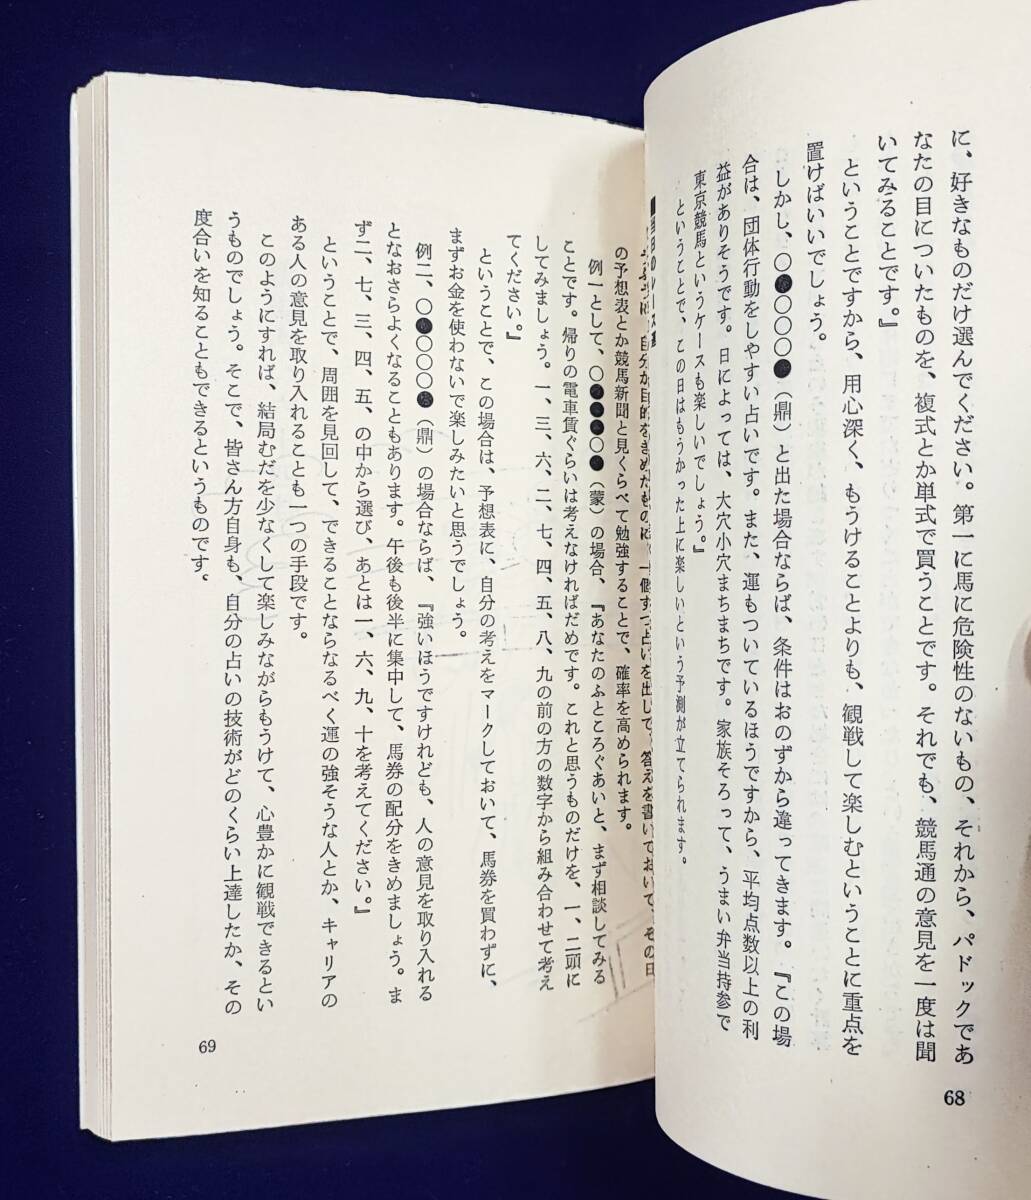 に、好きなものだけ選んでください。第一に馬に危険性のないもの、それから、パドックであ
なたの目についたものを、複式とか単式で買うことです。それでも、競馬通の意見を一度は聞
いてみることです。』
ということですから、用心深く、もうけることよりも、観戦して楽しむということに重点を
置けばいいでしょう。
しかし、〇●〇〇〇●（鼎）と出た場合ならば、条件はおのずから違ってきます。『この場
合は、団体行動をしやすい占いです。また、運もついているほうですから、平均点数以上の利
益がありそうです。日によっては、大穴小穴まちまちです。家族そろって、うまい弁当持参で
東京競馬というケースも楽しいでしょう。』
ということで、この日はもうかった上に楽しいという予測が立てられます。
68
自分が目的をきめたものに、一個ずつ占いを出して、答えを書いておいて、その日
の予想表とか競馬新聞と見くらべて勉強することで、確率を高められます。
例一として、〇●●●〇●（蒙）の場合、『あなたのふところぐあいと、まず相談してみる
ことです。帰りの電車賃ぐらいは考えなければだめです。これと思うものだけを、一、二頭に
してみましょう。一、三、六、二、七、四、五、八、九の前の方の数字から組み合わせて考え
てください。』
ということで、この場合は、予想表に、自分の考えをマークしておいて、馬券を買わずに、
まずお金を使わないで楽しみたいと思うでしょう。
例二、〇●〇〇〇●（鼎）の場合ならば、『強いほうですけれども、人の意見を取り入れる
となおさらよくなることもあります。午後も後半に集中して、馬券の配分をきめましょう。ま
ず二、七、三、四、五、の中から選び、あとは一、六、九、十を考えてください。』
ということで、周囲を見回して、できることならなるべく運の強そうな人とか、キャリアの
ある人の意見を取り入れることも一つの手段です。
このようにすれば、結局むだを少なくして楽しみながらもうけて、心豊かに観戦できるとい
うものでしょう。そこで、皆さん方自身も、自分の占いの技術がどのくらい上達したか、その
度合いを知ることもできるというものです。
69